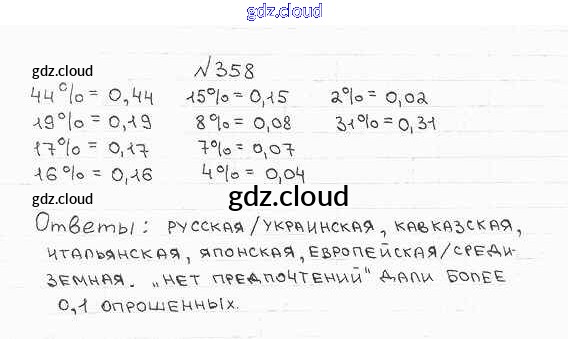 gdz.cloud
gdz.cloud
№358
44% = 0,44 15% = 0,15 2% = 0,02
19% = 0,19 8% = 0,08 31% = 0,31
17% = 0,17 7% = 0,07
16% = 0,16 4% = 0,04
gdz.cloud
gdz.cloud
Ответы: РУССКАЯ/УКРАИНСКАЯ, КАВКАЗСКАЯ,
ИТАЛЬЯНСКАЯ, ЯПОНСКАЯ, ЕВРОПЕЙСКАЯ/СРЕДИ-
ЗЕМНАЯ. „НЕТ ПРЕДПОЧТЕНИЙ" ДАЛИ БОЛЕЕ
0,1 ОПРОШЕННЫХ.